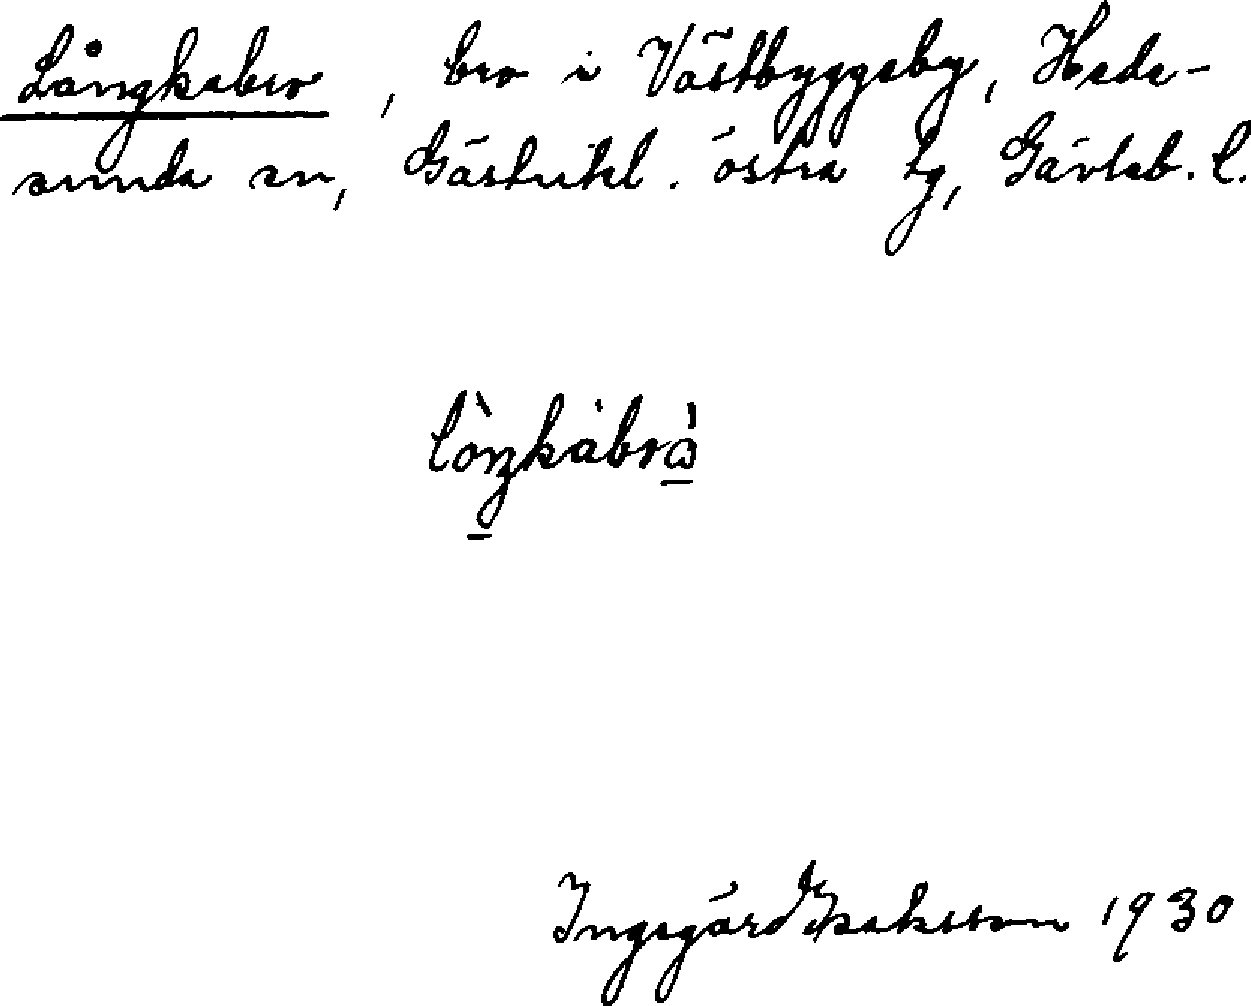 Långkabro, bro i Västbyggeby, Hede-
sunda sn, Gästrikl. östra tg, Gävleb. l.
Ingegärd Isaksson 1930